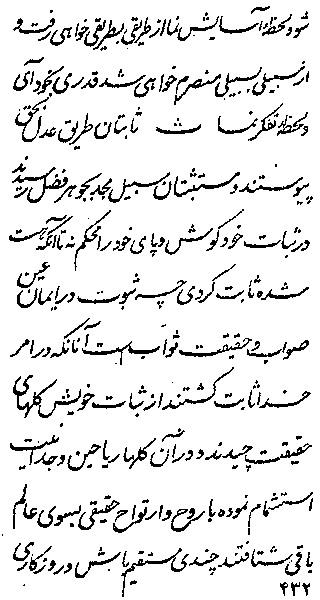 شود لحظهٔ آسایش نما از طریقی بطریقی خواهی رفت و
از سبیلی بسبیلی منصرم خواهی شد قدری بخود آی
و لحظهٔ تفکر نما ث ثابتان طریق عدل بحق
پیوستند و مستثبتان سبیل مجد بجوهر فضل رسیدند
در ثبات خود کوش و پای خود را محکم نه تا آنکه
شده ثابت کردی چه ثبوت در ایمان عین
صواب و حقیقت ثواب است آنانکه در امر
خدا ثابت گشتند از ثبات خویش گلهای
حقیقت چیدند و در آن گلها ریاحین وجدانیت
استشمام نموده با روح و ارتواح حقیقی بسوی عالم
باقی شتافتند چندی مستقیم باش و روزگاری
۴۳۲